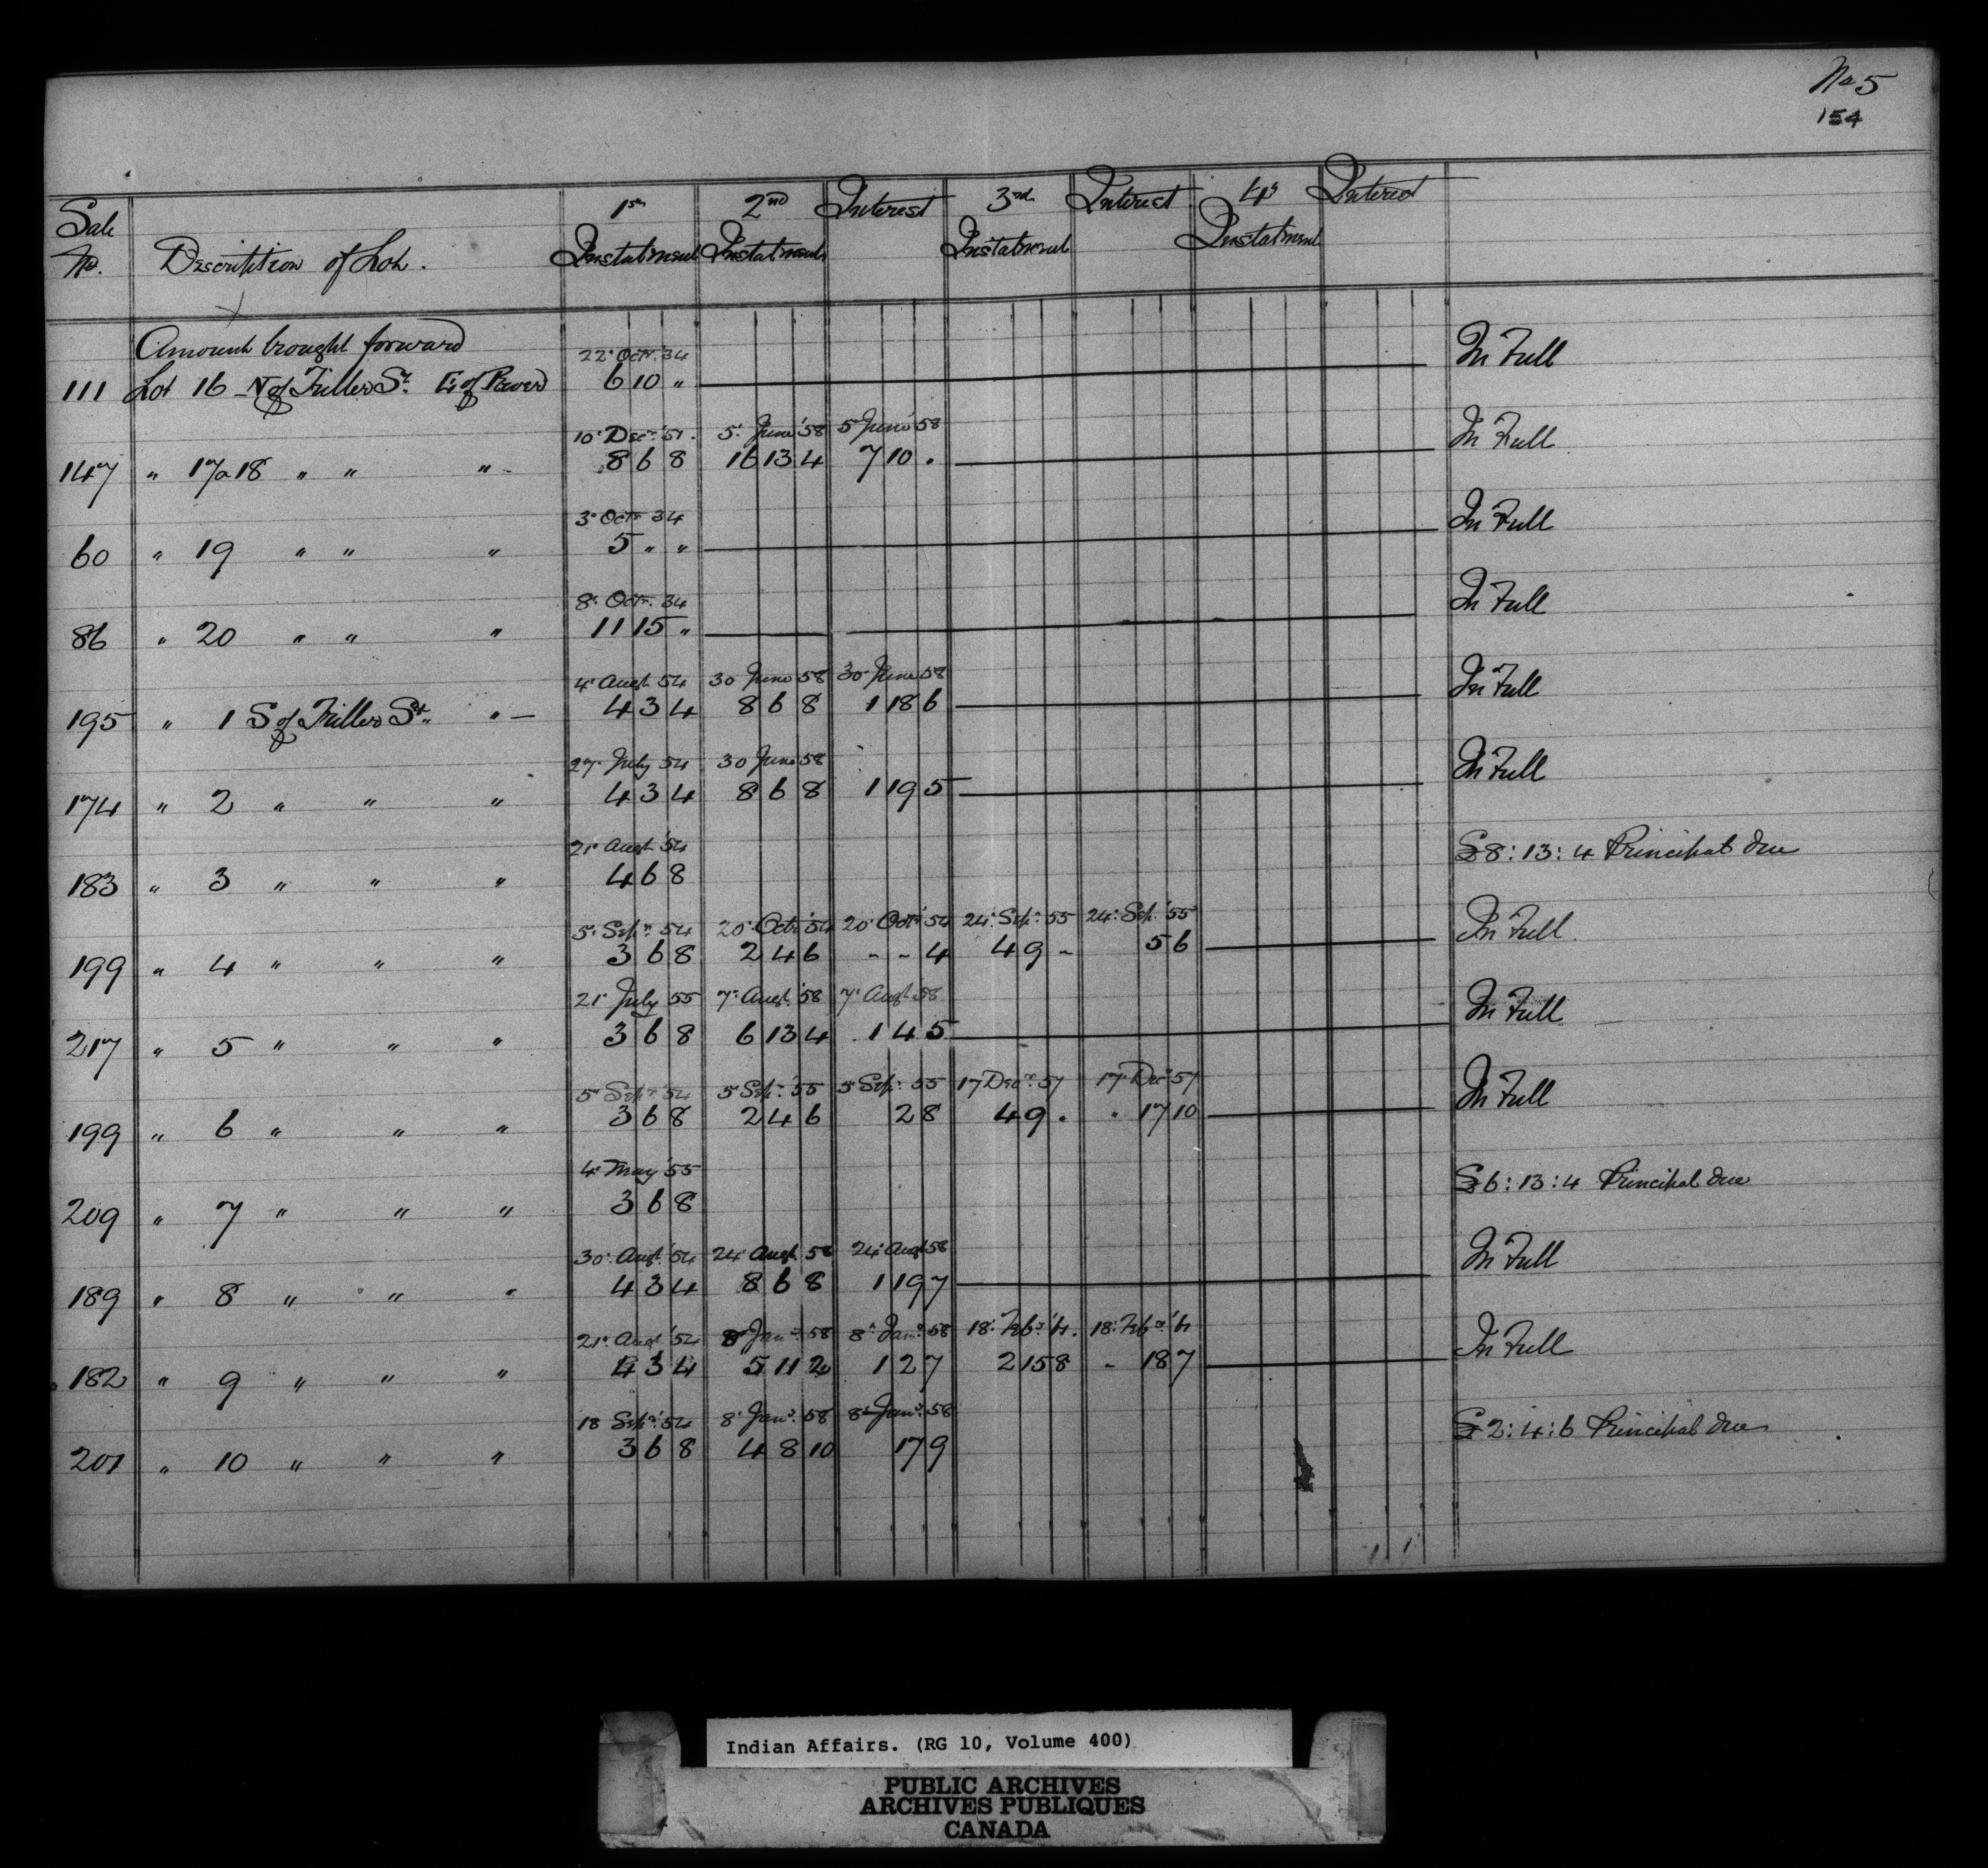 No 5
154
Sale No. Description of Lot. 1st Instalment 2nd Instalment Interest 3rd Instalment Interest 4th Instalment Interest
Amount brought forward
22 Octr. 34
111 Lot 16 N of Fuller St. E of River 6 10 " In Full
10 Decr. 51. 5 June '58 5 June 58
147 " 17 & 18 " " " 8 6 8 16 13 4 7 10 . In Full
3 Octr 34
60 " 19 " " " 5 " " In Full
8 Octr. 34
86 " 20 " " " 11 15 " In Full
4 Augt 54 30 June 58 30 June 58
195 " 1 S of Fuller St. " 4 3 4 8 6 8 1 18 6 In Full
27 July 54 30 June 58
174 " 2 " " " 4 3 4 8 6 8 1 19 5 In Full
21 Augt 54
183 " 3 " " " 4 6 8 £8:13:4 Principal due
5 Sepr. 54 20 Octr 54 20 Octr 54 24 Sepr. 55 24 Sepr. 55
199 " 4 " " " 3 6 8 2 4 6 - - 4 4 9 - 5 6 In Full
21 July 55 7 Augt. 58 7 Augt 58
217 " 5 " " " 3 6 8 6 13 4 1 4 5 In Full
5 Sepr 54 5 Sepr. 55 5 Sepr. 55 17 Decr. 57 17 Decr 57
199 " 6 " " " 3 6 8 2 4 6 2 8 4 9 . . 17 10 In Full
4 May 55
209 " 7 " " " 3 6 8 £6:13:4 Principal due
30 Augt. 54 24 Augt. 58 24 Augt 58
189 " 8 " " " 4 3 4 8 6 8 1 19 7 In Full
21 Augt 54 8 Jany. 58 8 Jany. 58 18 Feby. 18 Feby.
182 " 9 " " " 4 3 4 5 11 2 1 2 7 2 15 8 - 18 7 In Full
18 Sepr. 54 8 Jany. 58 8 Jany. 58
201 " 10 " " " 3 6 8 4 8 10 17 9 £2:4:6 Principal due
Indian Affairs. (RG 10, Volume 400)
PUBLIC ARCHIVES
ARCHIVES PUBLIQUES
CANADA